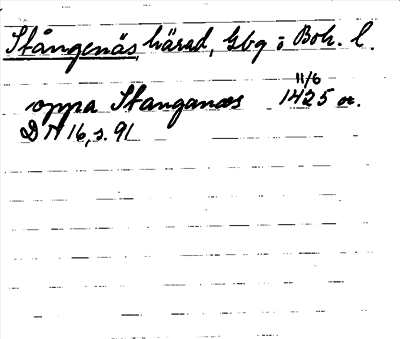 Stångenäs härad, Gbg o Boh. l.
11/6
oppa Stanganæs 1425 or.
DN 16, s. 91